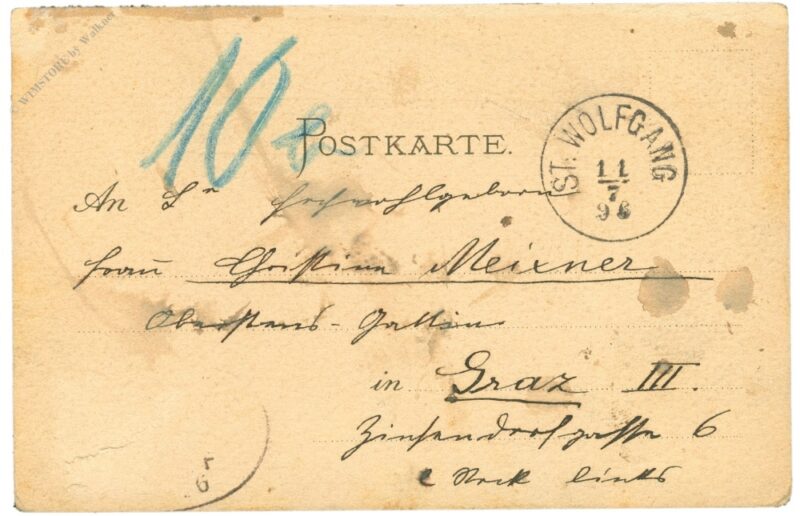 WTMSTORE by Walkner
10
POSTKARTE.
ST. WOLFGANG
11
7
96
An Hochwohlgeborn
Frau Christine Meixner
Oberstens-Gattin
in Graz III.
Zinzendorfgasse 6
Stock links